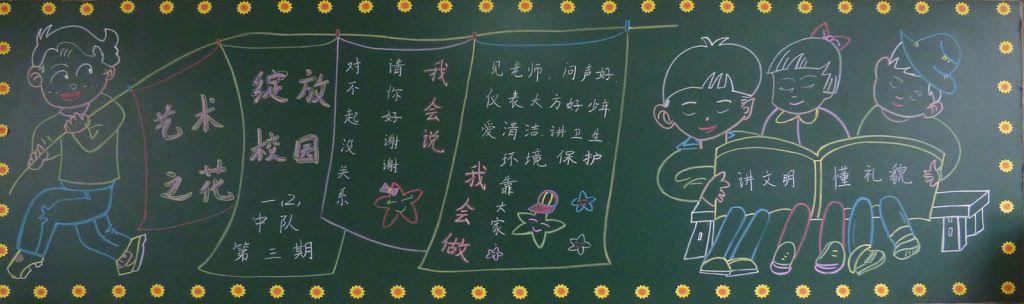 艺术
之花
绽放
校园
一.2.
中队
第三期
我会说
请你好谢谢
对不起没关系
我会做
见老师、问声好.
仪表大方好少年
爱清洁讲卫生
环境保护
靠大家
讲文明
懂礼貌